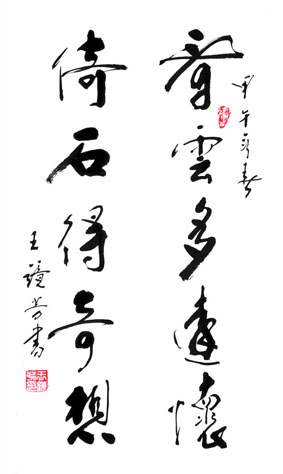 甲午新春
看雲多遠懷
倚石得奇想
王鏡芳書